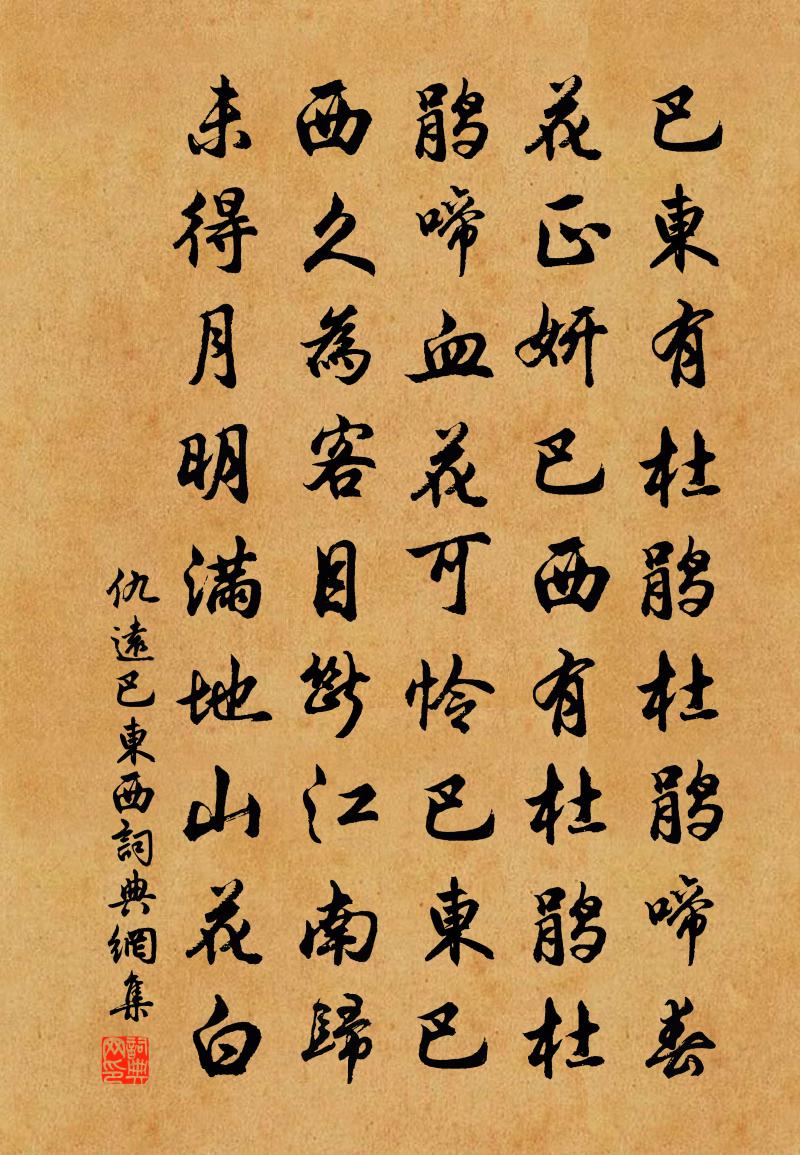 巴東有杜鵑杜鵑啼春
花正妍巴西有杜鵑杜
鵑啼血花可怜巴東巴
西久為客目斷江南歸
未得月明滿地山花白
仇遠巴東西詞典網集
詞典网印